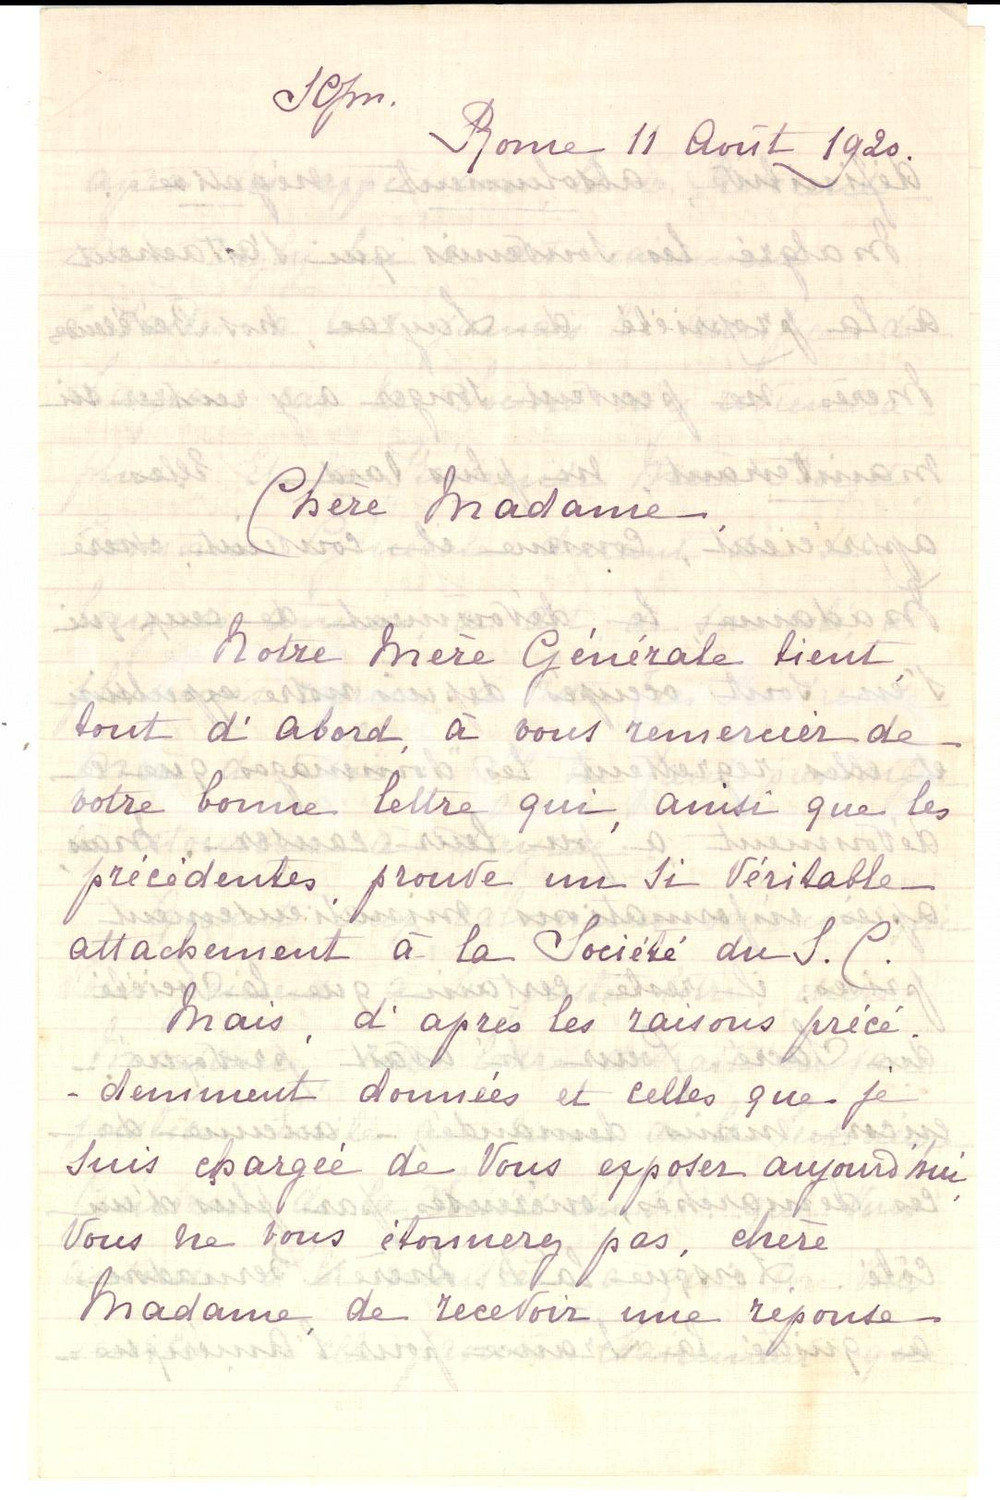 Rome 11 Août 1920.
Chère Madame,
Notre Mère Générale tient
tout d'abord, à vous remercier de
votre bonne lettre qui, ainsi que les
précédentes, prouve un si véritable
attachement à la Société du S. C.
Mais, d'après les raisons précé-
-demment données et celles que je
suis chargée de vous exposer aujourd'hui,
vous ne vous étonnerez pas, chère
Madame, de recevoir une réponse